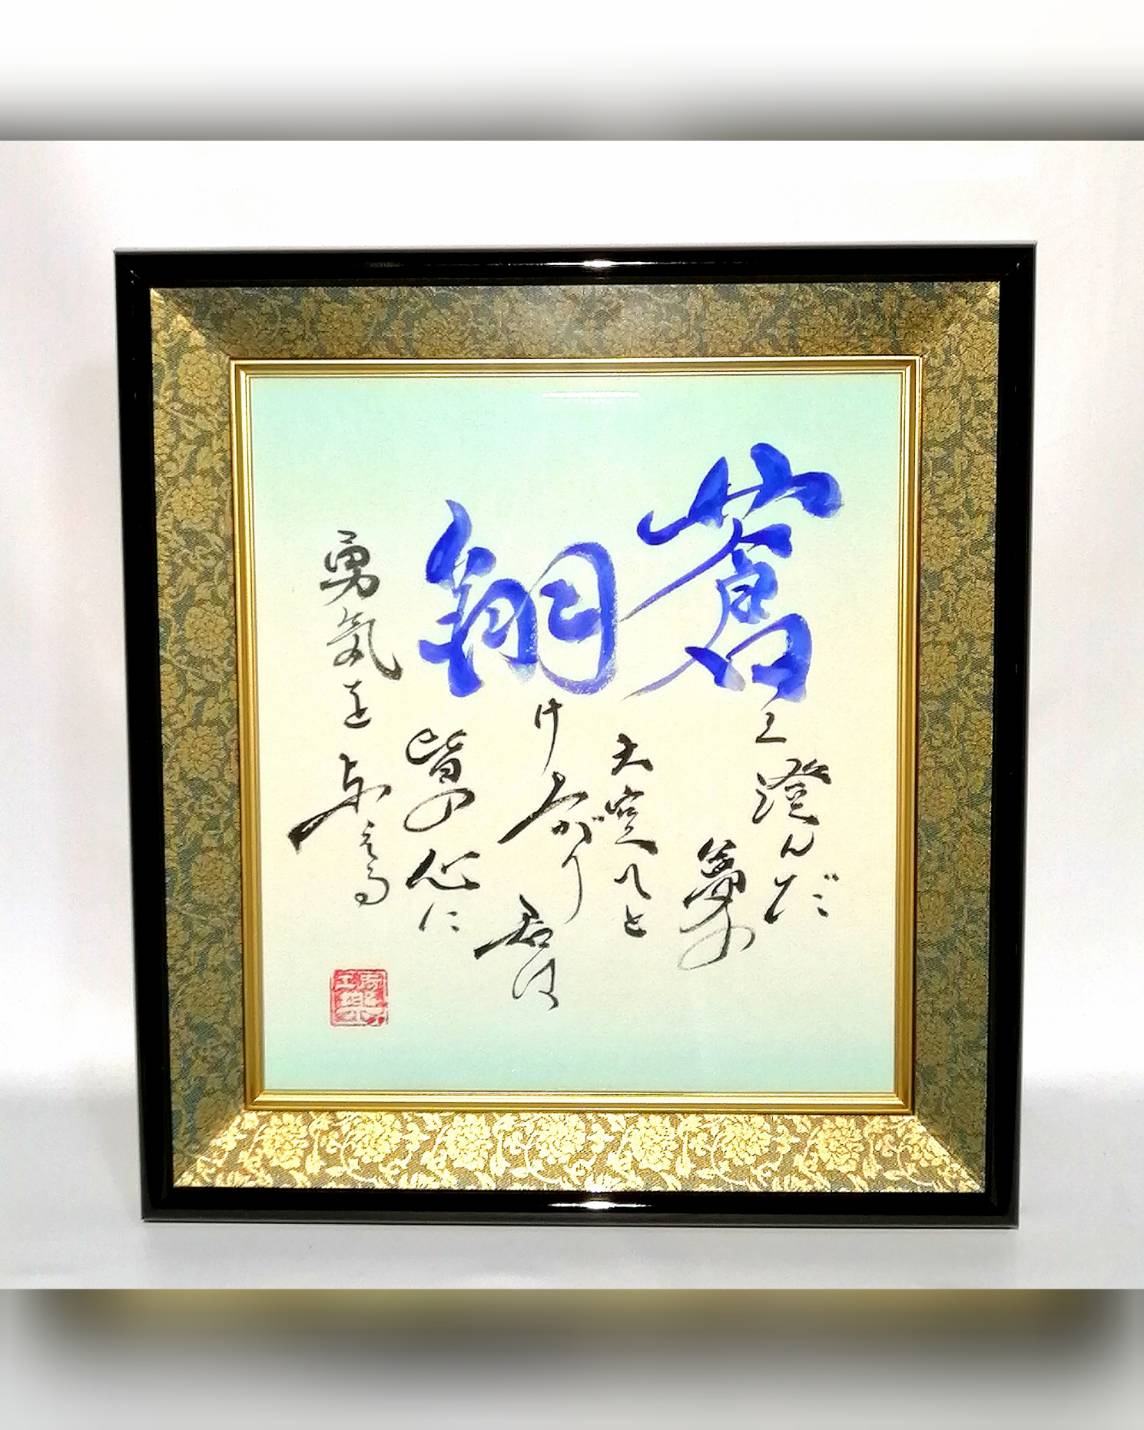 蒼く澄んだ
夢の
大空へと
翔け上がり
君は
皆の心に
勇気を与える